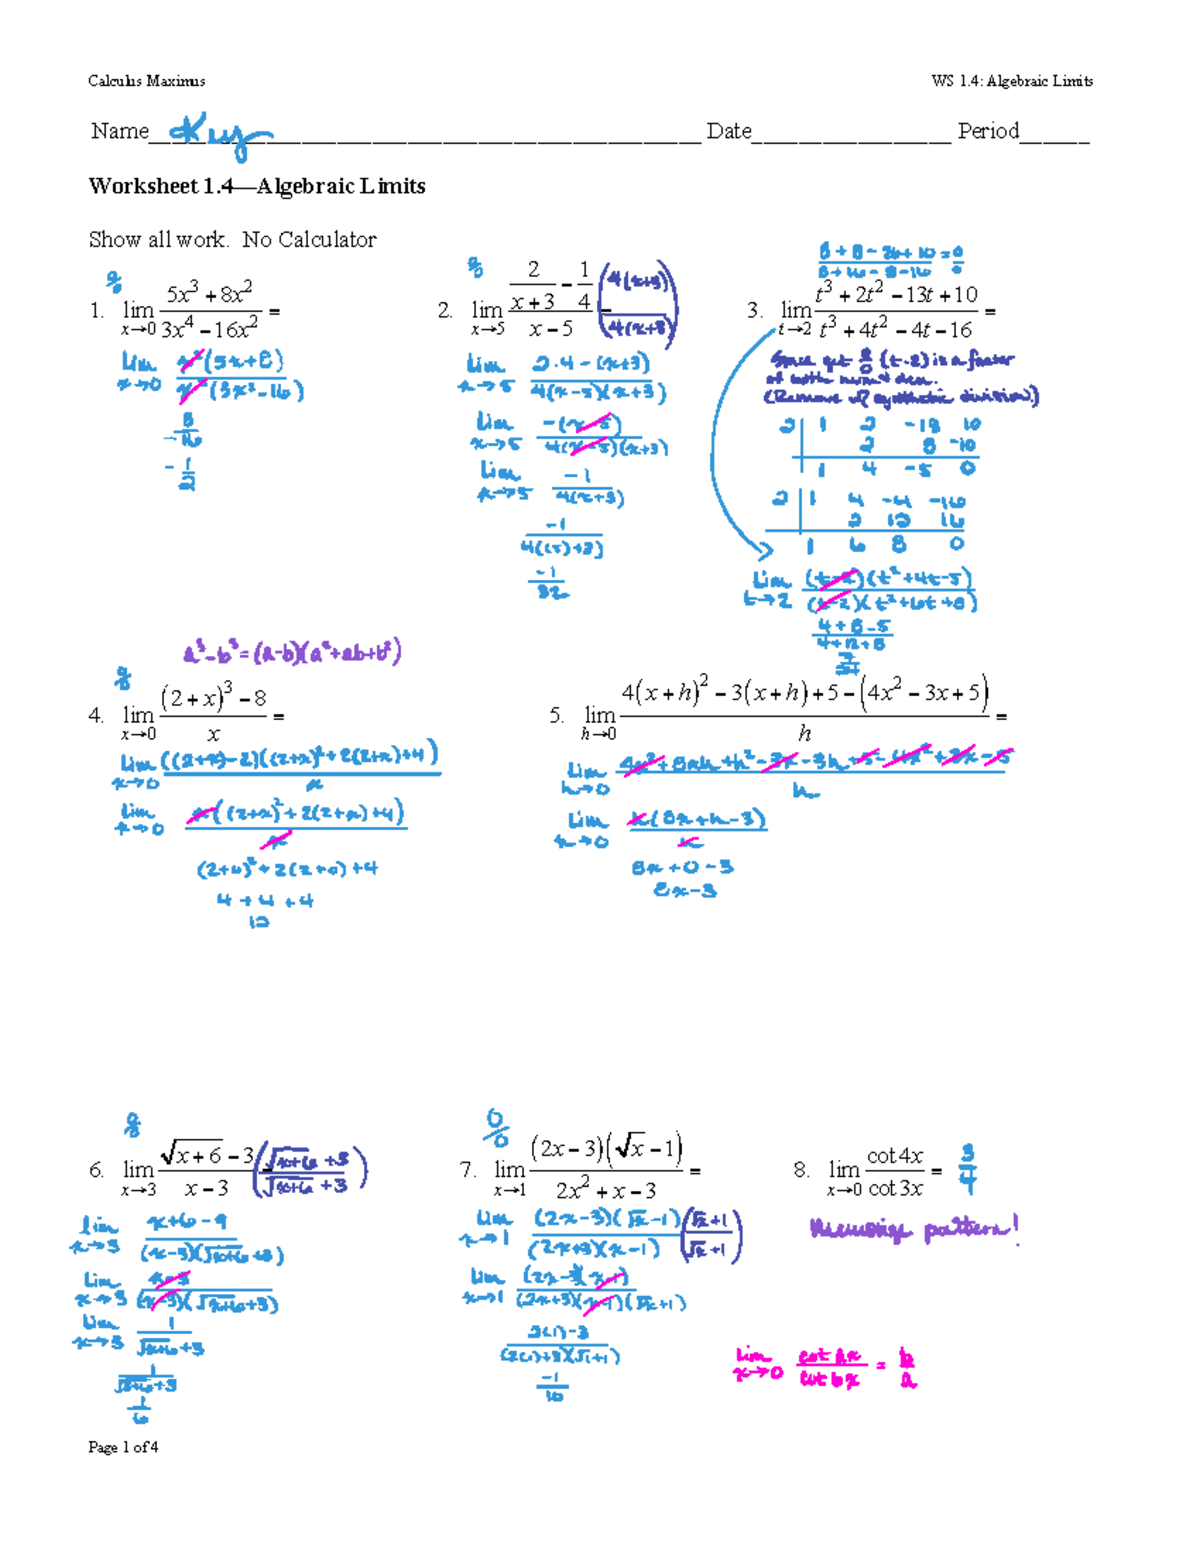 Calculus Maximus WS 1.4: Algebraic Limits
Name Key Date Period
Worksheet 1.4—Algebraic Limits
Show all work. No Calculator
0/0
1. lim x→0 (5x³ + 8x²)/(3x⁴ − 16x²) =
lim x→0 x²(5x+8)/(x²(3x²−16))
−8/16
−1/2
0/0
2. lim x→5 (2/(x+3) − 1/4)/(x − 5) = (4(x+3)/4(x+3))
lim x→5 (2·4 − (x+3))/(4(x−5)(x+3))
lim x→5 −(x−5)/(4(x−5)(x+3))
lim x→5 −1/(4(x+3))
−1/(4((5)+3))
−1/32
(8+8−26+10)/(8+16−8−16) = 0/0
3. lim t→2 (t³ + 2t² − 13t + 10)/(t³ + 4t² − 4t − 16) =
Since get 0/0 (t-2) is a factor
of both num + den.
(Remove w/ synthetic division)
2 | 1 2 −13 10
2 8 −10
1 4 −5 0
2 | 1 4 −4 −16
2 12 16
1 6 8 0
lim t→2 (t−2)(t²+4t−5)/((t−2)(t²+6t+8))
(4+8−5)/(4+12+8)
7/24
a³−b³=(a−b)(a²+ab+b²)
0/0
4. lim x→0 ((2 + x)³ − 8)/x =
lim x→0 ((2+x)−2)((2+x)²+2(2+x)+4)/x
lim x→0 x((2+x)²+2(2+x)+4)/x
(2+0)²+2(2+0)+4
4+4+4
12
5. lim h→0 (4(x + h)² − 3(x + h) + 5 − (4x² − 3x + 5))/h =
lim h→0 (4x²+8xh+h²−3x−3h+5−4x²+3x−5)/h
lim x→0 h(8x+h−3)/h
8x+0−3
8x−3
0/0
6. lim x→3 (√(x + 6) − 3)/(x − 3) = ((√(x+6)+3)/(√(x+6)+3))
lim x→3 (x+6−9)/((x−3)(√(x+6)+3))
lim x→3 (x−3)/((x−3)(√(x+6)+3))
lim x→3 1/(√(x+6)+3)
1/(√(3+6)+3)
1/6
0/0
7. lim x→1 (2x − 3)(√x − 1)/(2x² + x − 3) =
lim x→1 (2x−3)(√x−1)/((2x+3)(x−1)) ((√x+1)/(√x+1))
lim x→1 (2x−3)(x−1)/((2x+3)(x−1)(√x+1))
(2(1)−3)/((2(1)+3)(√1+1))
−1/10
8. lim x→0 cot 4x/cot 3x = 3/4
Memorize pattern!
lim x→0 cot ax/cot bx = b/a
Page 1 of 4